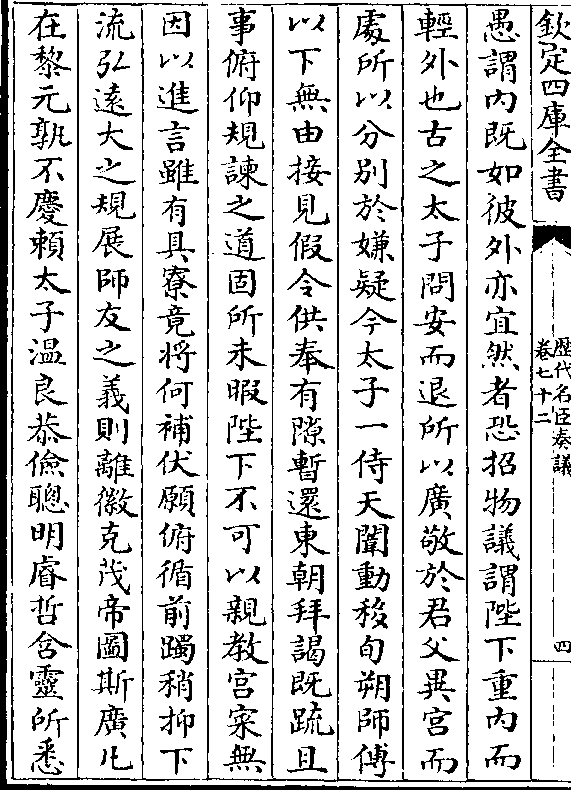 欽定四庫全書
歷代名臣奏議
卷七十二
四
愚謂內既如彼外亦宜然者恐招物議謂陛下重內而
輕外也古之太子問安而退所以廣敬於君父異宮而
處所以分別於嫌疑今太子一侍天闈動移旬朔師傅
以下無由接見假令供奉有隙暫還東朝拜謁既疏且
事俯仰規諫之道固所未暇陛下不可以親教宮寀無
因以進言雖有具寮竟將何補伏願俯循前躅稍抑下
流弘遠大之規展師友之義則離徽克茂帝圖斯廣凡
在黎元孰不慶賴太子温良恭儉聰明睿哲含靈所悉